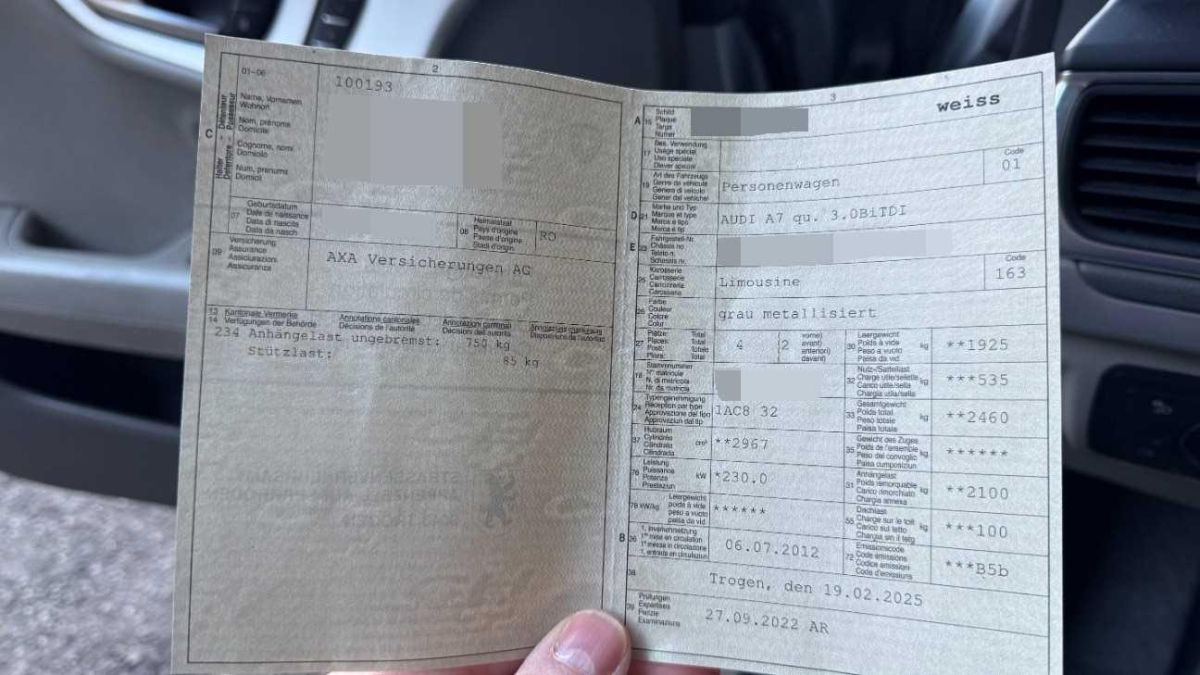 2
01-06
100193
C
Name, Vornamen
Wohnort
Nom, prénoms
Domicile
Cognome, nomi
Domicilio
Num, prenums
Domicil
07
Geburtsdatum
Date de naissance
Data di nascita
Data da nasch.
08
Heimatstaat
Pays d'origine
Paese d'origine
Stadi d'origin.
RO
09
Versicherung
Assurance
Assicurazioni
Assicuranza
AXA Versicherungen AG
13 Kantonale Vermerke
14 Verfügungen der Behörde
Annotations cantonales
Décisions de l'autorité
Annotazioni cantonali
Decisioni dell'autorità
Annotaziuns chantunalas
Disposiziuns da l'autoritad
234 Anhängelast ungebremst: 750 kg
Stützlast: 85 kg
1
3
weiss
A 15
Schild
Plaque
Targa
Numer
17
Bes. Verwendung
Usage spécial
Uso speciale
Diever spezial
19
Art des Fahrzeugs
Genre de véhicule
Genere di veicolo
Gener dal vehichel
Personenwagen
Code
01
D 21
Marke und Typ
Marque et type
Marca e tipo
Marca e tip
AUDI A7 qu. 3.0BiTDI
E 23
Fahrgestell-Nr.
Châssis no
Telaio n.
Schassis nr.
25
Karosserie
Carrosserie
Carrozzeria
Carossaria
Limousine
Code
163
26
Farbe
Couleur
Colore
Colur
grau metallisiert
27
Plätze: Total
Places: Total
Posti: Totale
Plazs: Total
4
(2
vorne)
avant)
anteriori)
davant)
30
Leergewicht
Poids à vide
Peso a vuoto
Paisa da vid
kg
**1925
18
Stammnummer
N° matricule
N. di matricola
Nr. da matricla
32
Nutz-/Sattellast
Charge utile/sellette
Carico utile/sella
Chargia utila/sella
kg
***535
24
Typengenehmigung
Réception par type
Approvazione del tipo
Approvaziun dal tip
1AC8 32
33
Gesamtgewicht
Poids total
Peso totale
Paisa totala
kg
**2460
37
Hubraum
Cylindrée
Cilindrata
Cilindrada
cm³
**2967
35
Gewicht des Zuges
Poids de l'ensemble
Peso del convoglio
Paisa cumposiziun
kg
******
76
Leistung
Puissance
Potenza
Prestaziun
kW
*230.0
31
Anhängelast
Poids remorquable
Carico rimorchiato
Chargia annexa
kg
**2100
78 kW/kg
Leergewicht
poids à vide
peso a vuoto
paisa da vid
******
55
Dachlast
Charge sur le toit
Carico sul tetto
Chargia sin il tetg
kg
***100
B 36
1. Inverkehrsetzung
1re mise en circulation
1a messa in circolazione
1. entrada en circulaziun
06.07.2012
72
Emissionscode
Code émissions
Codice emissioni
Code d'emissiuns
***B5b
38
Trogen, den 19.02.2025
39
Prüfungen
Expertises
Perizie
Examinaziuns
27.09.2022 AR